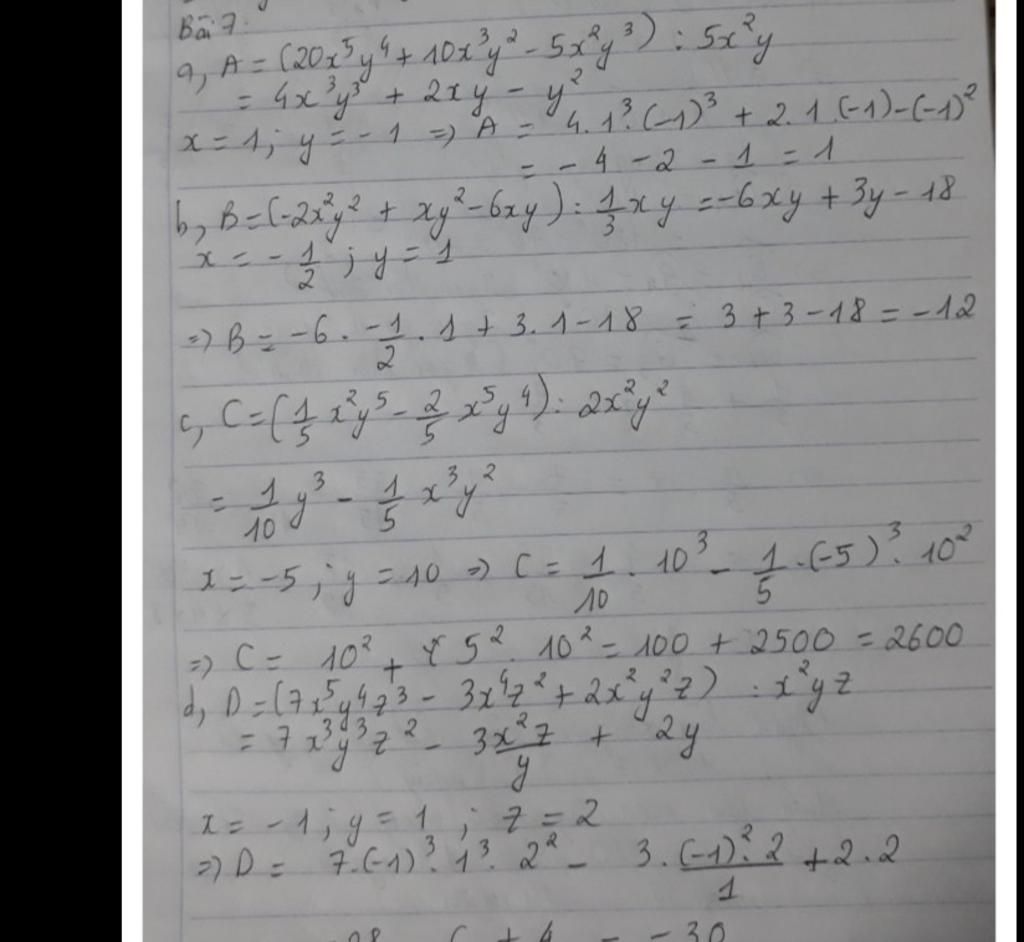 Bài 7.
a, A = (20x⁵y⁴ + 10x³y² - 5x²y³) : 5x²y
= 4x³y³ + 2xy - y²
x = 1; y = -1 => A = 4.1³.(-1)³ + 2.1.(-1)-(-1)²
= -4 - 2 - 1 = 1
b, B = (-2x²y² + xy² - 6xy) : 1/3 xy = -6xy + 3y - 18
x = - 1/2 ; y = 1
=> B = -6 . -1/2 . 1 + 3.1 - 18 = 3 + 3 - 18 = -12
c, C = (1/5 x²y⁵ - 2/5 x⁵y⁴) : 2x²y²
= 1/10 y³ - 1/5 x³y²
x = -5 ; y = 10 => C = 1/10 . 10³ - 1/5 . (-5)³ . 10²
=> C = 10² + 5² . 10² = 100 + 2500 = 2600
d, D = (7x⁵y⁴z³ - 3x⁴z² + 2x²y²z) : x²yz
= 7x³y³z² - 3x²z/y + 2y
x = -1 ; y = 1 ; z = 2
=> D = 7.(-1)³.1³.2² - 3.(-1)².2/1 + 2.2
+ 4 = -30